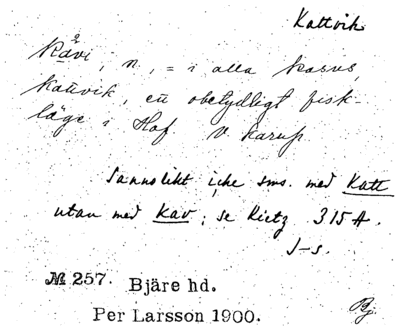 Kattvik
Kåvi, n, = i alla kasus,
Kattvik, en obetydligt fisk-
läge i Hof V. Karup
Sannolikt icke sms. med Katt
utan med Kav; se Rietz 315 A.
J-s.
№ 257. Bjäre hd.
Per Larsson 1900.
Bj.